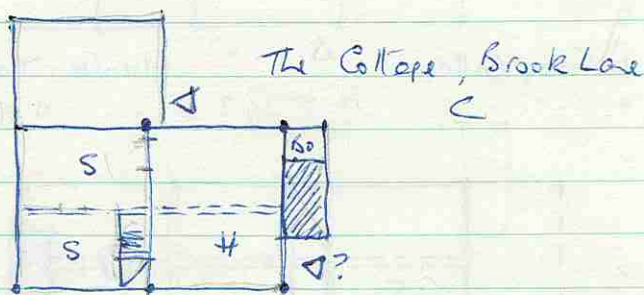 The Cottage, Brook Lane
C
Bo
S
S
H
?